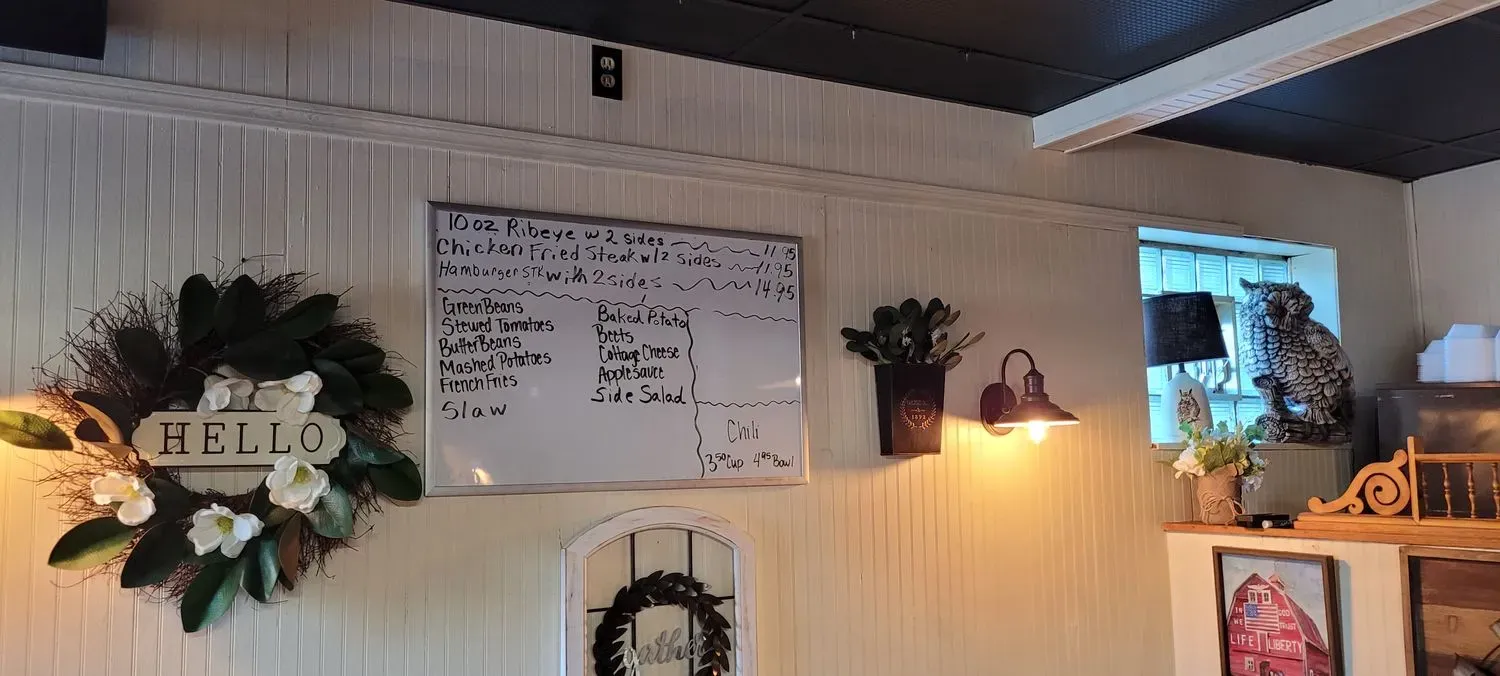 10 oz Ribeye w 2 sides 11.95
Chicken Fried Steak w/2 sides 11.95
Hamburger STK with 2 sides 14.95
Green Beans
Stewed Tomatoes
Butter Beans
Mashed Potatoes
French Fries
Slaw
Baked Potato
Beets
Cottage Cheese
Applesauce
Side Salad
Chili
3.50 Cup 4.95 Bowl
HELLO
gather
1892
IN GOD
WE TRUST
LIFE LIBERTY